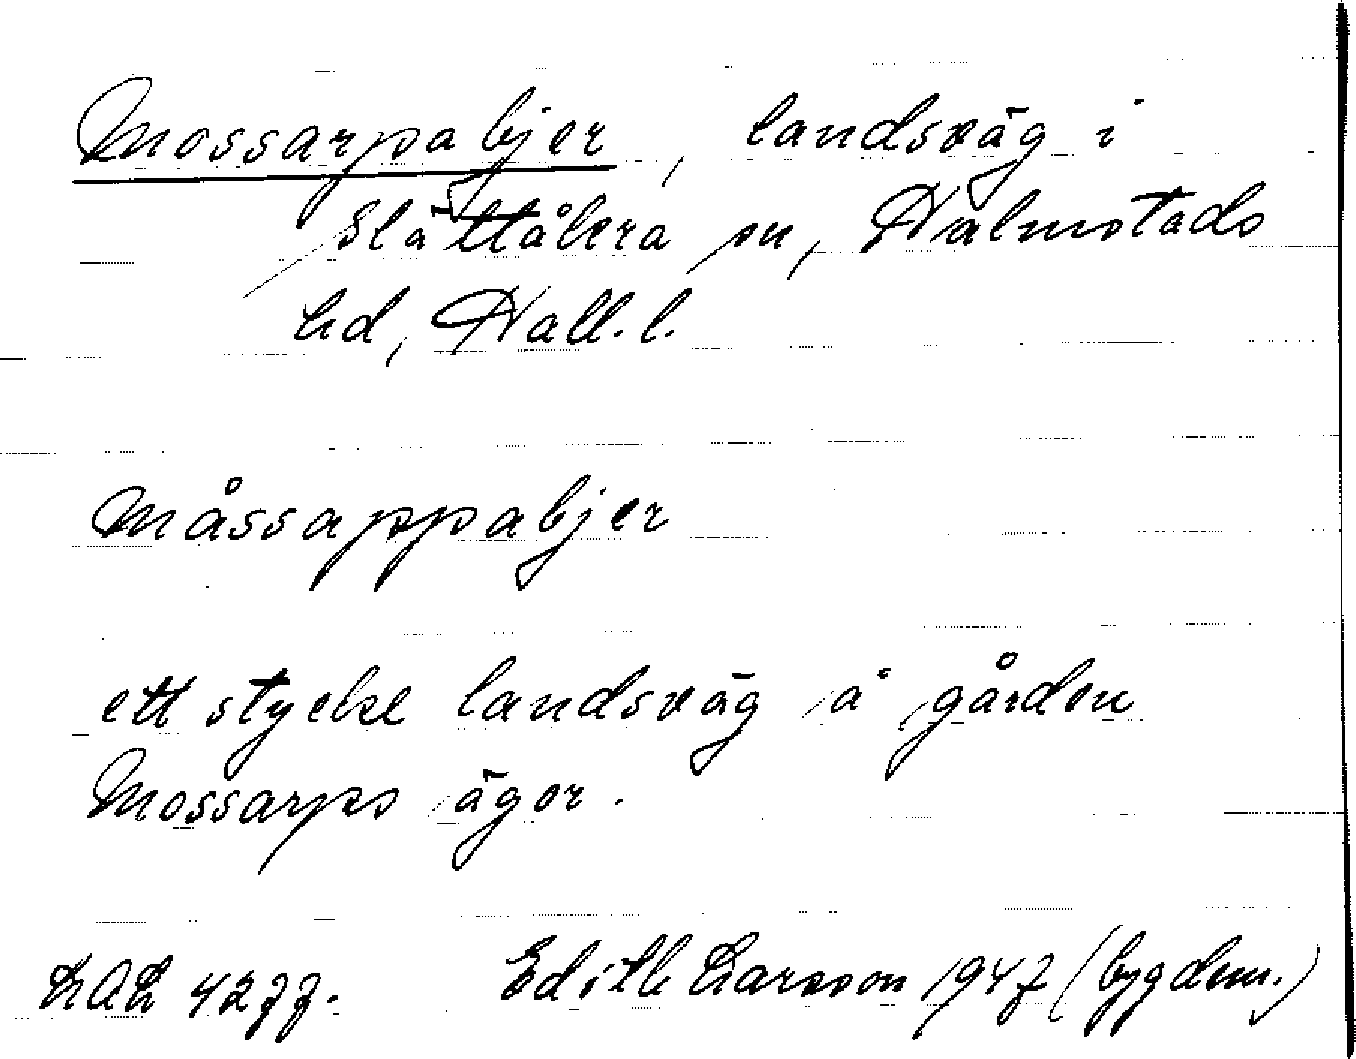 Mossarpabjer, landsväg i
Slättåkra sn, Halmstads
hd, Hall. l.
Måssappabjer
ett stycke landsväg å gården
Mossarps ägor.
LAL 4277. Edith Larsson 1947 (bygdem.)